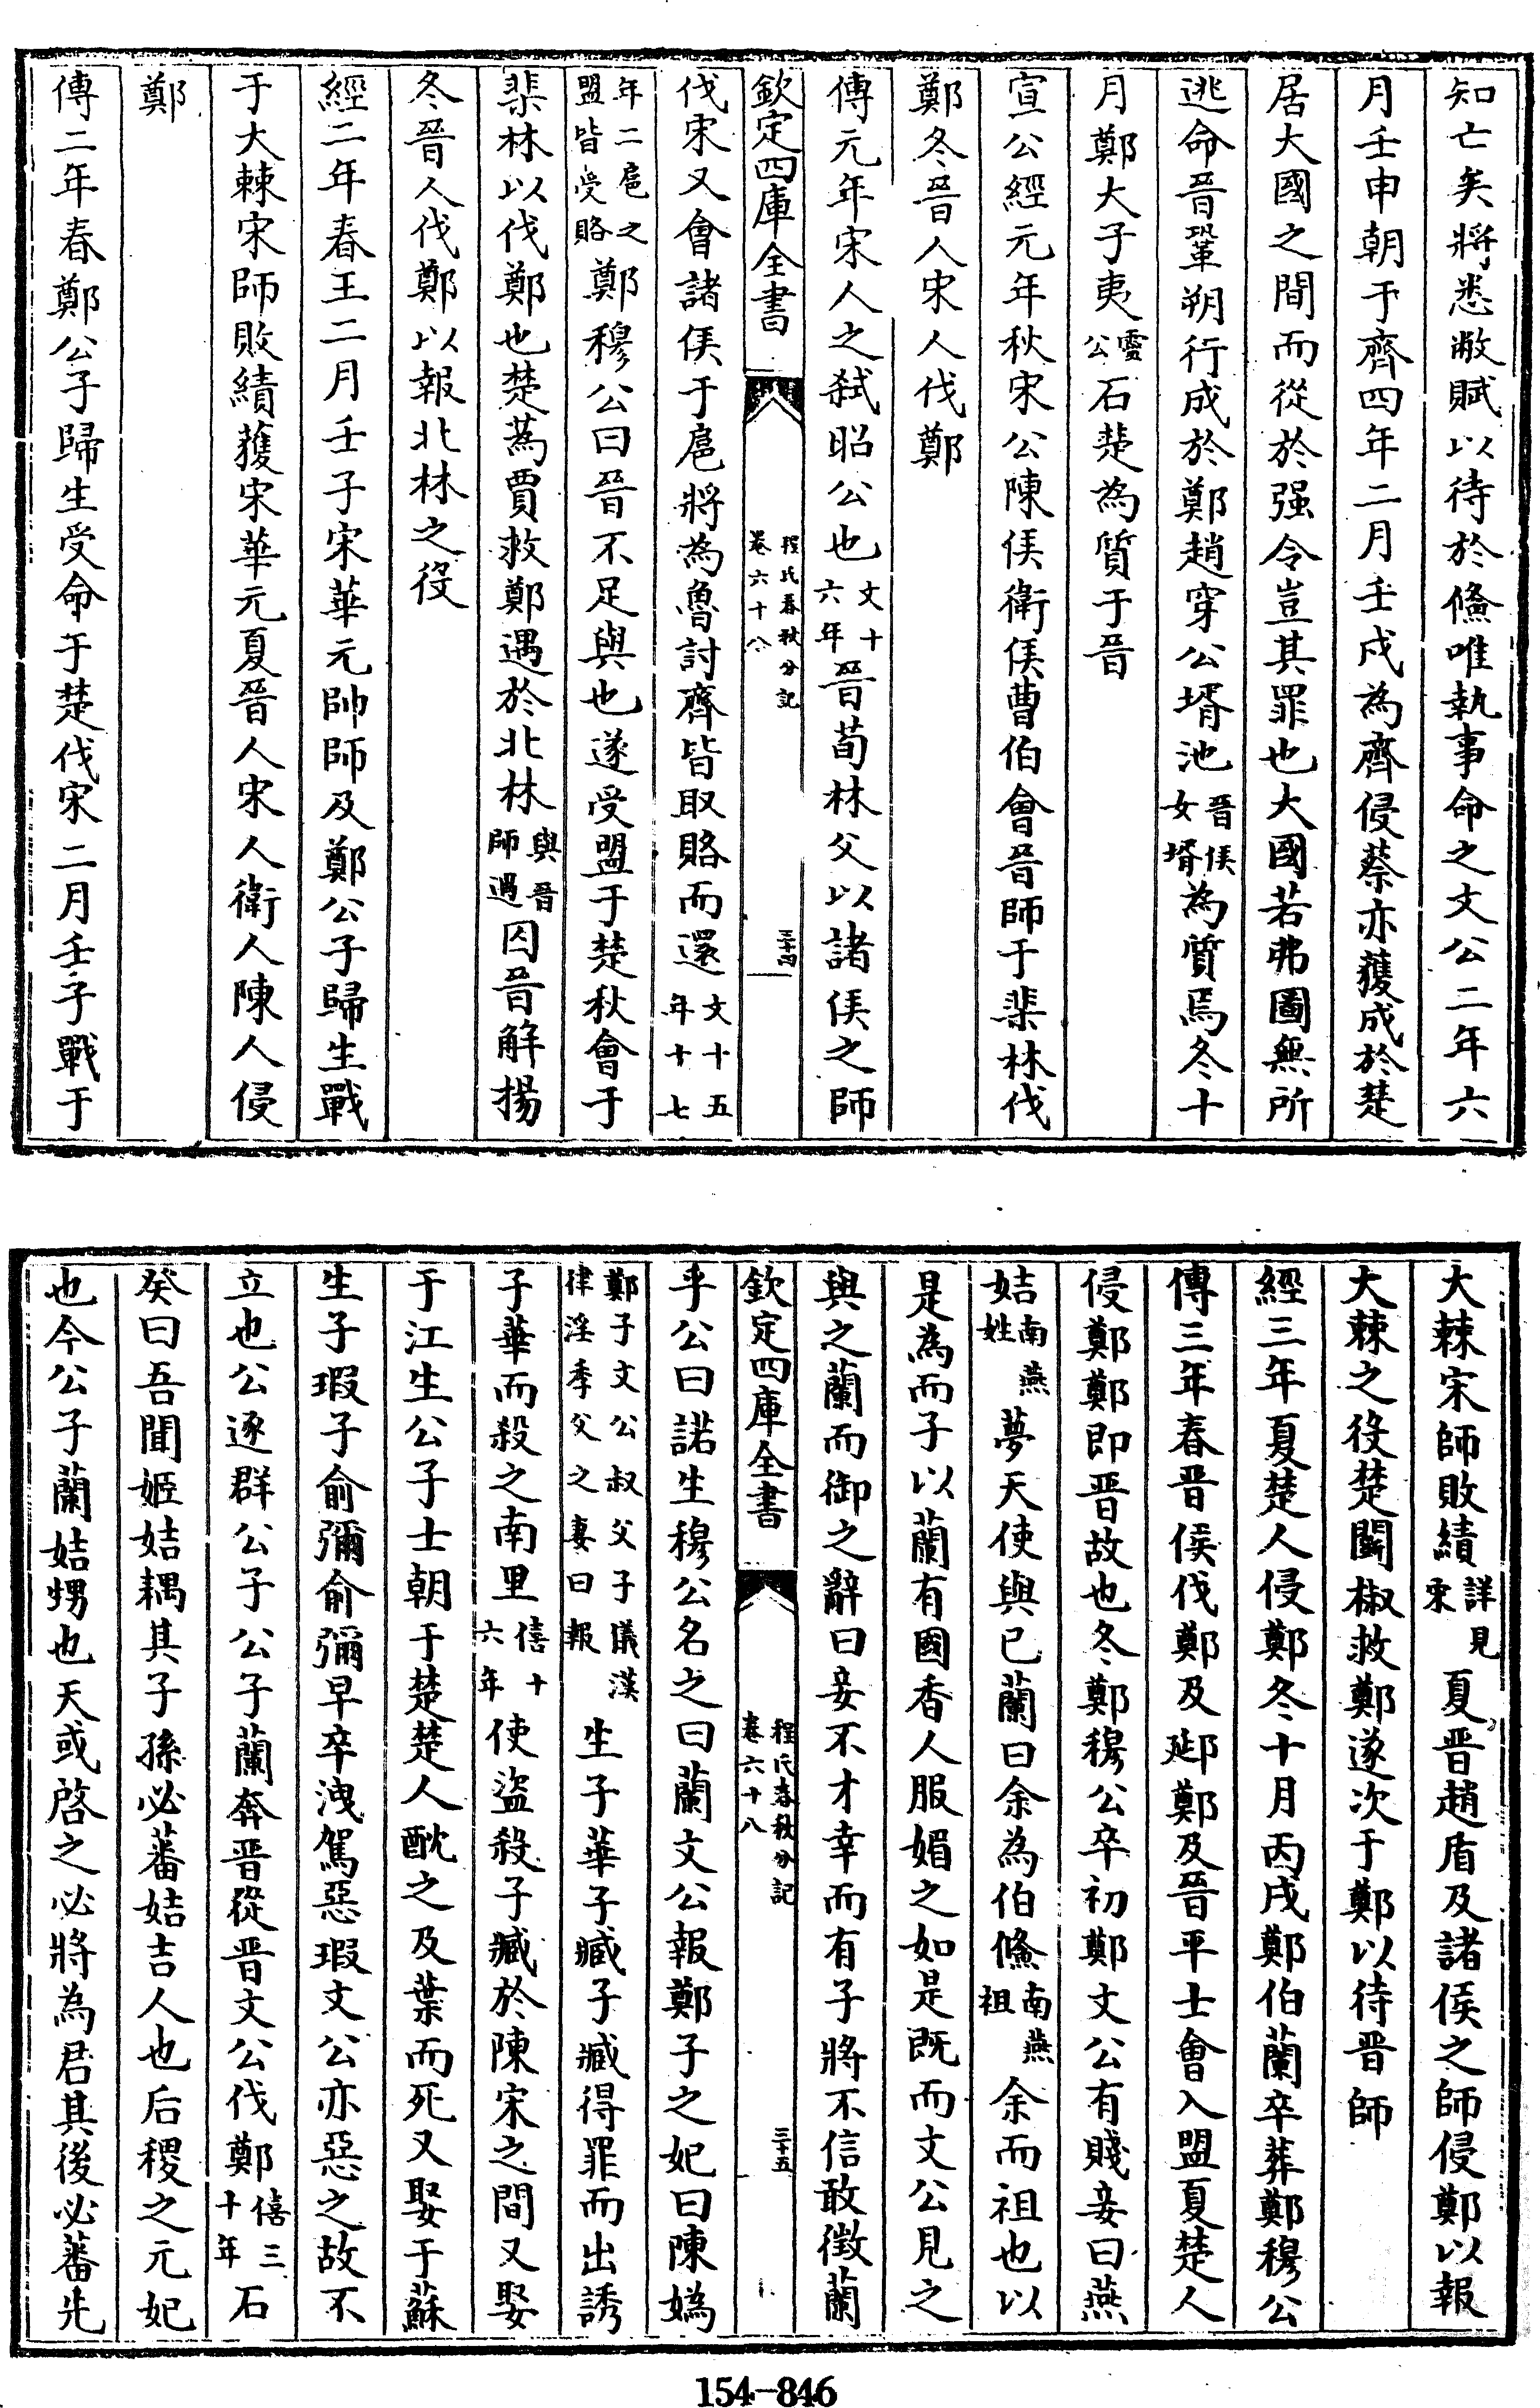 知亡矣將悉敝賦以待於鯈唯執事命之文公二年六
月壬申朝于齊四年二月壬戍為齊侵蔡亦獲成於楚
居大國之間而從於强令豈其罪也大國若弗圖無所
逃命晉鞏朔行成於鄭趙穿公壻池晉侯女壻為質焉冬十
月鄭大子夷靈公石楚為質于晉
宣公經元年秋宋公陳侯衛侯曹伯會晉師于棐林伐
鄭冬晉人宋人伐鄭
傳元年宋人之弑昭公也文十六年晉荀林父以諸侯之師
欽定四庫全書 程氏春秋分記卷六十八 三十四
伐宋又會諸侯于扈將為魯討齊皆取賂而還文十五年十七
年二扈之盟皆受賂鄭穆公曰晉不足與也遂受盟于楚秋會于
棐林以伐鄭也楚蒍賈救鄭遇於北林與晉師遇囚晉解揚
冬晉人伐鄭以報北林之役
經二年春王二月壬子宋華元帥師及鄭公子歸生戰
于大棘宋師敗績獲宋華元夏晉人宋人衛人陳人侵
鄭
傳二年春鄭公子歸生受命于楚伐宋二月壬子戰于
大棘宋師敗績詳見宋夏晉趙盾及諸侯之師侵鄭以報
大棘之役楚鬬椒救鄭遂次于鄭以待晉師
經三年夏楚人侵鄭冬十月丙戌鄭伯蘭卒葬鄭穆公
傳三年春晉侯伐鄭及郔鄭及晉平士會入盟夏楚人
侵鄭鄭即晉故也冬鄭穆公卒初鄭文公有賤妾曰燕
姞南燕姓夢天使與已蘭曰余為伯鯈南燕祖余而祖也以
是為而子以蘭有國香人服媚之如是既而文公見之
與之蘭而御之辭曰妾不才幸而有子將不信敢徵蘭
欽定四庫全書 程氏春秋分記卷六十八 三十五
乎公曰諾生穆公名之曰蘭文公報鄭子之妃曰陳媯
鄭子文公叔父子儀漢律淫季父之妻曰報生子華子臧子臧得罪而出誘
子華而殺之南里僖十六年使盜殺子臧於陳宋之間又娶
于江生公子士朝于楚楚人酖之及葉而死又娶于蘇
生子瑕子俞彌俞彌早卒洩駕惡瑕文公亦惡之故不
立也公逐群公子公子蘭奔晉從晉文公伐鄭僖三十年石
癸曰吾聞姬姞耦其子孫必蕃姞吉人也后稷之元妃
也今公子蘭姞甥也天或啓之必將為君其後必蕃先
154-846